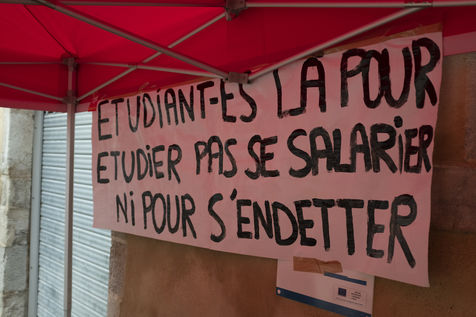 ÉTUDIANT-E-S LÀ POUR
ETUDIER PAS SE SALARiER
Ni POUR S'ENDETTER